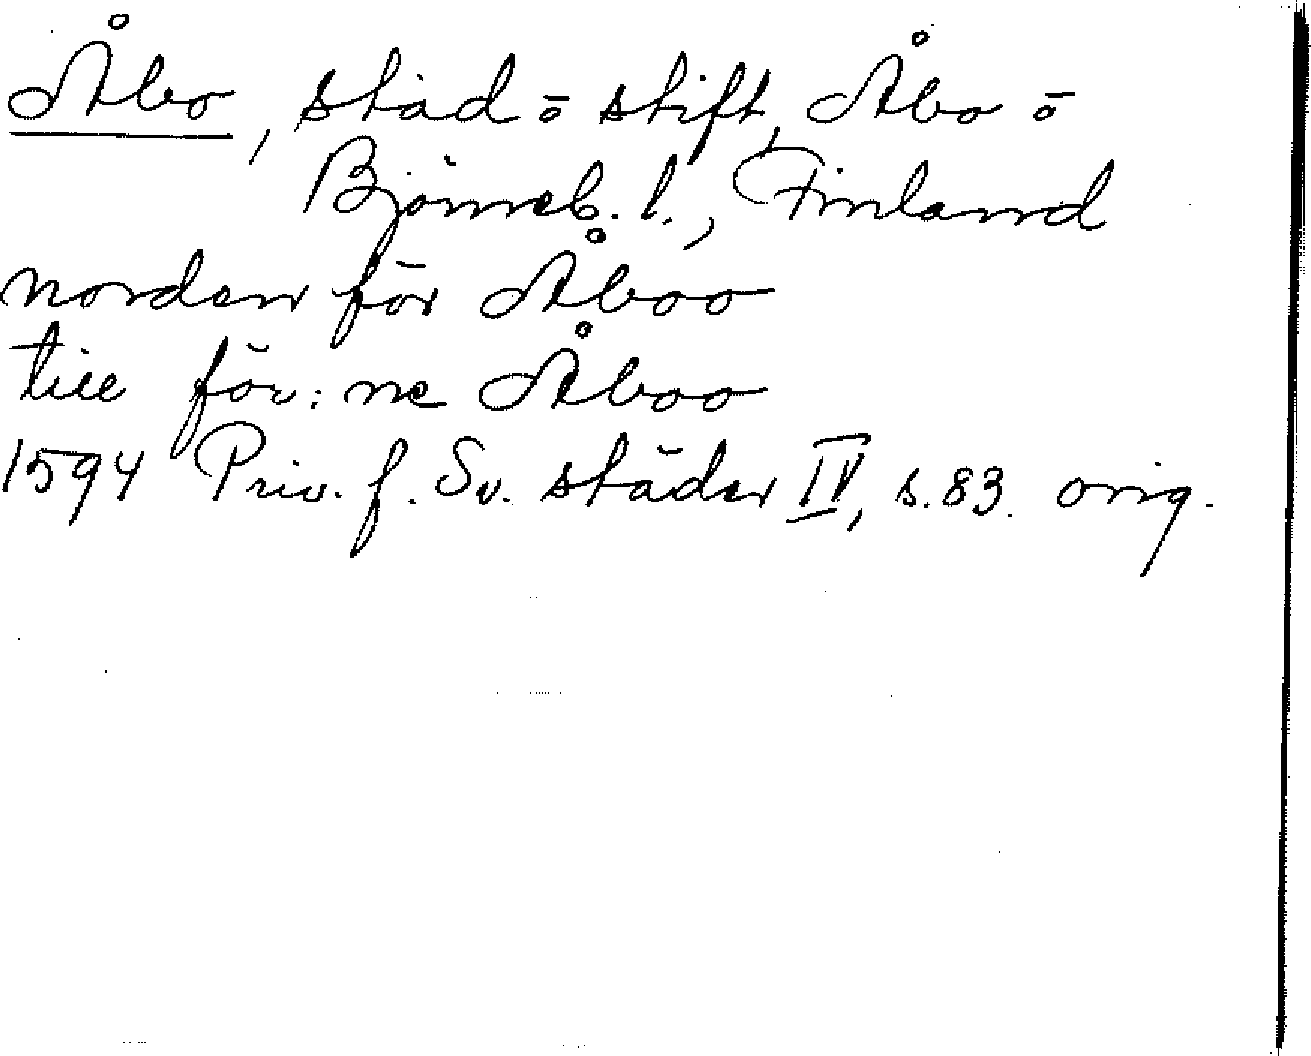 Åbo, stad o stift, Åbo o
Björneb. l., Finland
norden för Åboo
till för:ne Åboo
1594 Priv. f. Sv. städer IV, s. 83. orig.